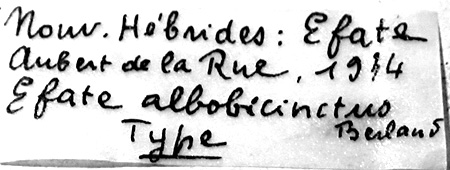 Nouv. Hébrides: Efate
Aubert de la Rue, 1934
Efate albobicinctus
Type Berland